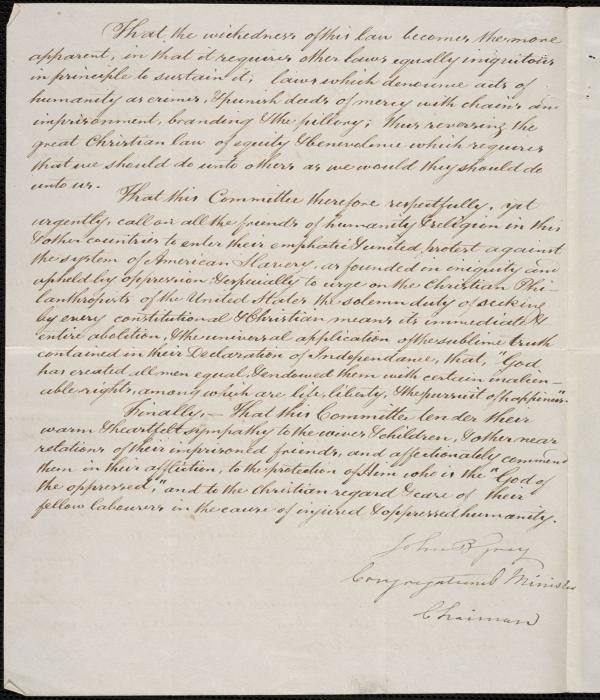 That the wickedness of this law becomes the more
apparent, in that it requires other laws equally iniquitous
in principle to sustain it; laws which denounce acts of
humanity as crimes, & punish deeds of mercy with chains
imprisonment, branding & the pillory; thus reversing the
great Christian law of equity & benevolence which requires
that we should do unto others as we would they should do
unto us.
That this Committee therefore respectfully, yet
urgently, call on all the friends of humanity & religion in this
& other countries to enter their emphatic & united protest against
the system of American Slavery, as founded in iniquity and
upheld by oppression & especially to urge on the Christian Phi-
lanthropists of the United States the solemn duty of seeking
by every constitutional & Christian means its immediate &
entire abolition, & the universal application of the sublime truth
contained in their Declaration of Independance, that, "God
has created all men equal & endowed them with certain inalien-
able rights, among which are life, liberty, & the pursuit of happiness".
Finally,— That this Committee tender their
warm & heartfelt sympathy to the wives & children, & other near
relations of their imprisoned friends, and affectionately commend
them in their affliction, to the protection of Him who is the "God of
the oppressed," and to the Christian regard & care of their
fellow labourers in the cause of injured & oppressed humanity.
John B Gray
Congregational Minister
Chairman